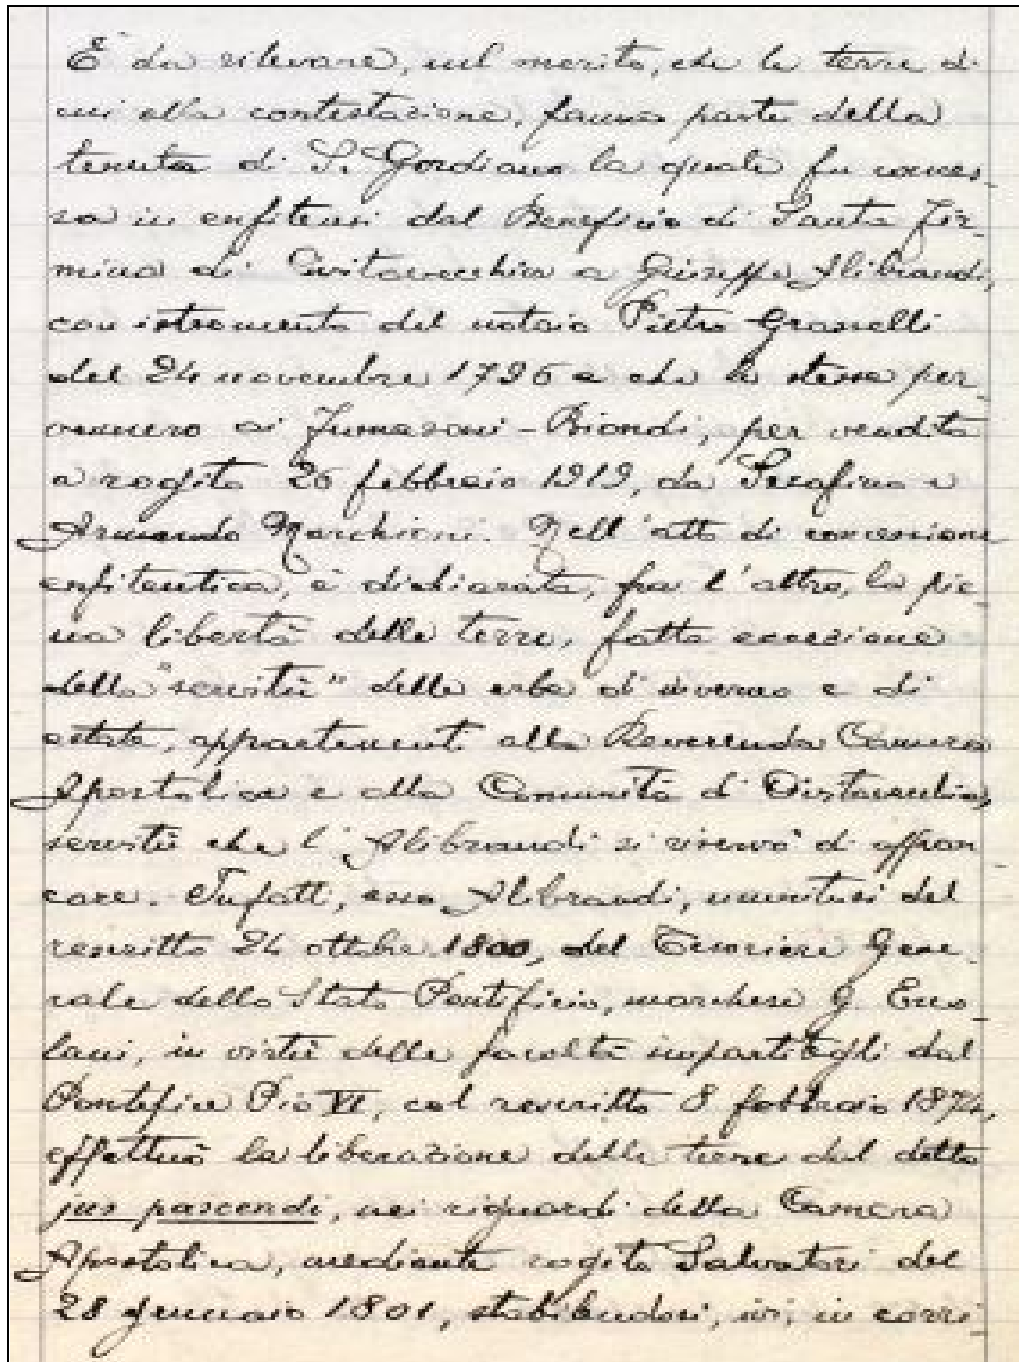 È da rilevare, nel merito, che le terre di
cui alla contestazione, fanno parte della
tenuta di S. Gordiano la quale fu conces-
sa in enfiteusi dal Beneficio di Santa Fir-
mina di Civitavecchia a Giuseppe Alibrandi,
con istromento del notaio Pietro Granelli
del 24 novembre 1796 e che le stesse per-
vennero ai Fumasoni-Biondi, per vendita
a rogito 26 febbraio 1919, da Serafino e
Armando Marchioni. Nell'atto di concessione
enfiteutica, è dichiarata, fra l'altro, la pie-
na libertà delle terre, fatta eccezione
della "servitù" delle erbe di inverno e di
estate, appartenenti alla Reverenda Camera
Apostolica e alla Comunità di Civitavecchia,
servitù che l'Alibrandi si riservò di affran-
care. Infatti, esso Alibrandi, munitosi del
rescritto 24 ottobre 1800, del Tesoriere Gene-
rale dello Stato Pontificio, marchese G. Erco-
lani, in virtù delle facoltà impartitegli dal
Pontefice Pio VI, col rescritto 8 febbraio
effettuò la liberazione delle terre dal detto
jus pascendi, nei riguardi della Camera
Apostolica, mediante rogito Salvatori del
28 gennaio 1801, stabilendosi, ivi, in corri-